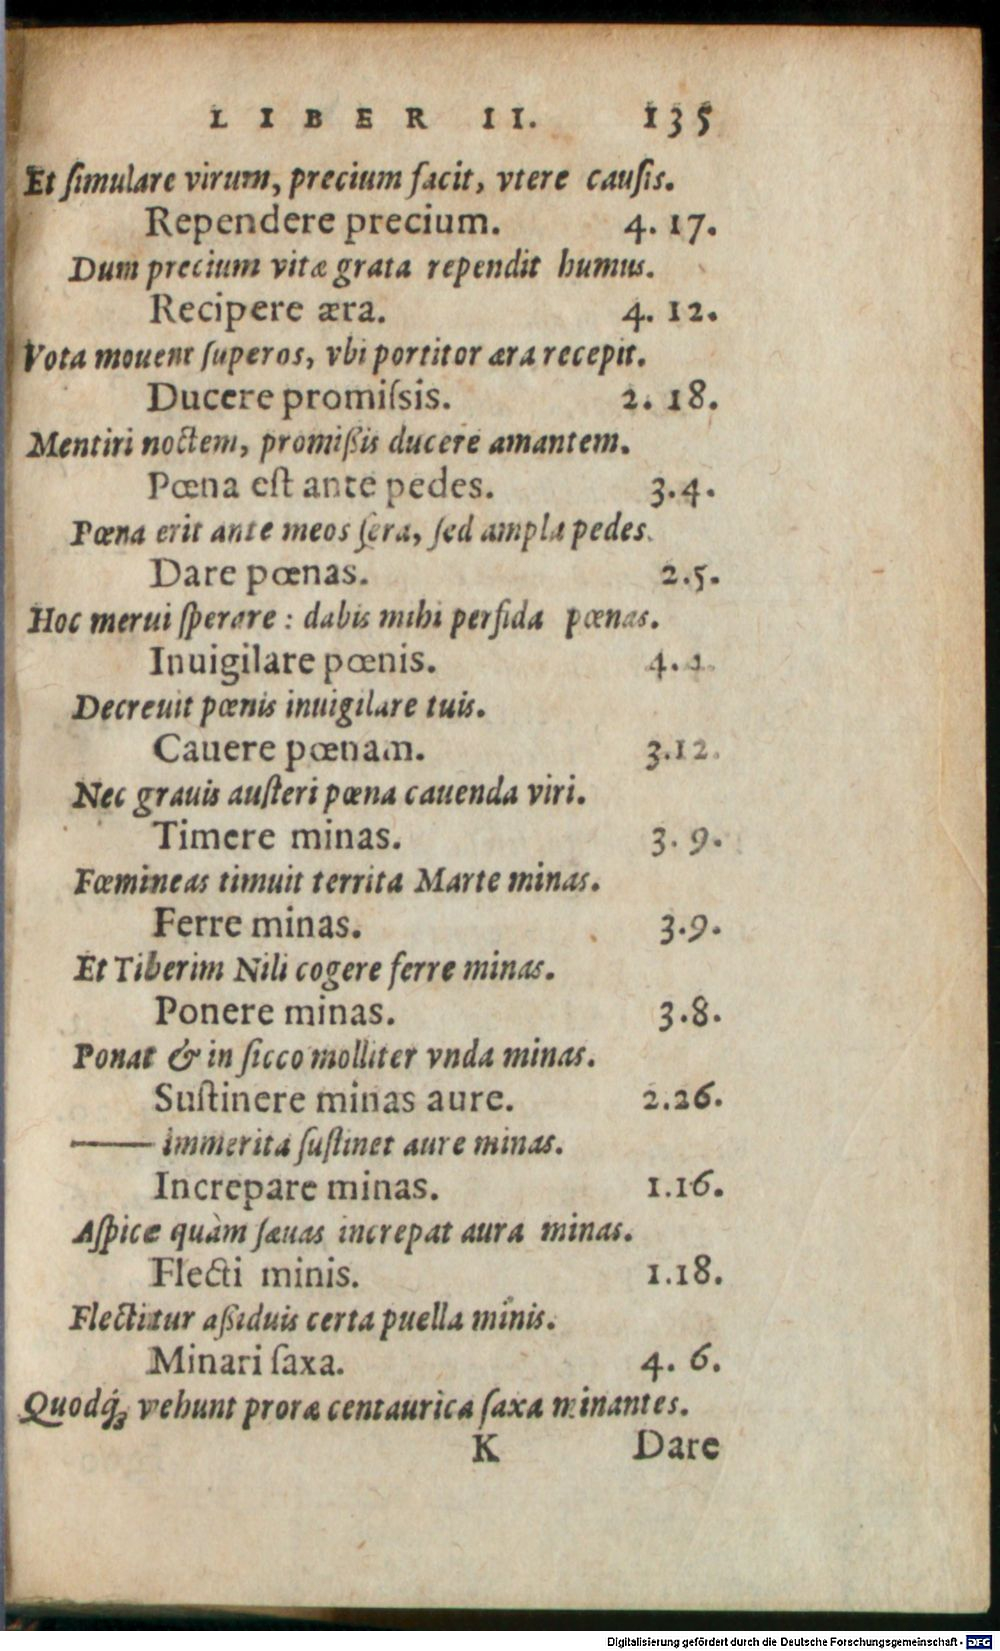 LIBER II. 135
Et ſimulare virum, precium facit, vtere cauſis.
Rependere precium. 4. 17.
Dum precium vitæ grata rependit humus.
Recipere æra. 4. 12.
Vota mouent ſuperos, vbi portitor æra recepit.
Ducere promiſsis. 2. 18.
Mentiri noctem, promißis ducere amantem.
Pœna eſt ante pedes. 3.4.
Pœna erit ante meos ſera, ſed ampla pedes.
Dare pœnas. 2.5.
Hoc merui ſperare : dabis mihi perfida pœnas.
Inuigilare pœnis. 4.
Decreuit pœnis inuigilare tuis.
Cauere pœnam. 3.12.
Nec grauis auſteri pœna cauenda viri.
Timere minas. 3. 9.
Fœmineas timuit territa Marte minas.
Ferre minas. 3.9.
Et Tiberim Nili cogere ferre minas.
Ponere minas. 3.8.
Ponat & in ſicco molliter vnda minas.
Suſtinere minas aure. 2.26.
—— immerita ſuſtinet aure minas.
Increpare minas. 1.16.
Aſpice quàm ſæuas increpat aura minas.
Flecti minis. 1.18.
Flectitur aßiduis certa puella minis.
Minari ſaxa. 4. 6.
Quodq́ꝫ vehunt proræ centaurica ſaxa minantes.
K Dare
Digitalisierung gefördert durch die Deutsche Forschungsgemeinschaft - DFG